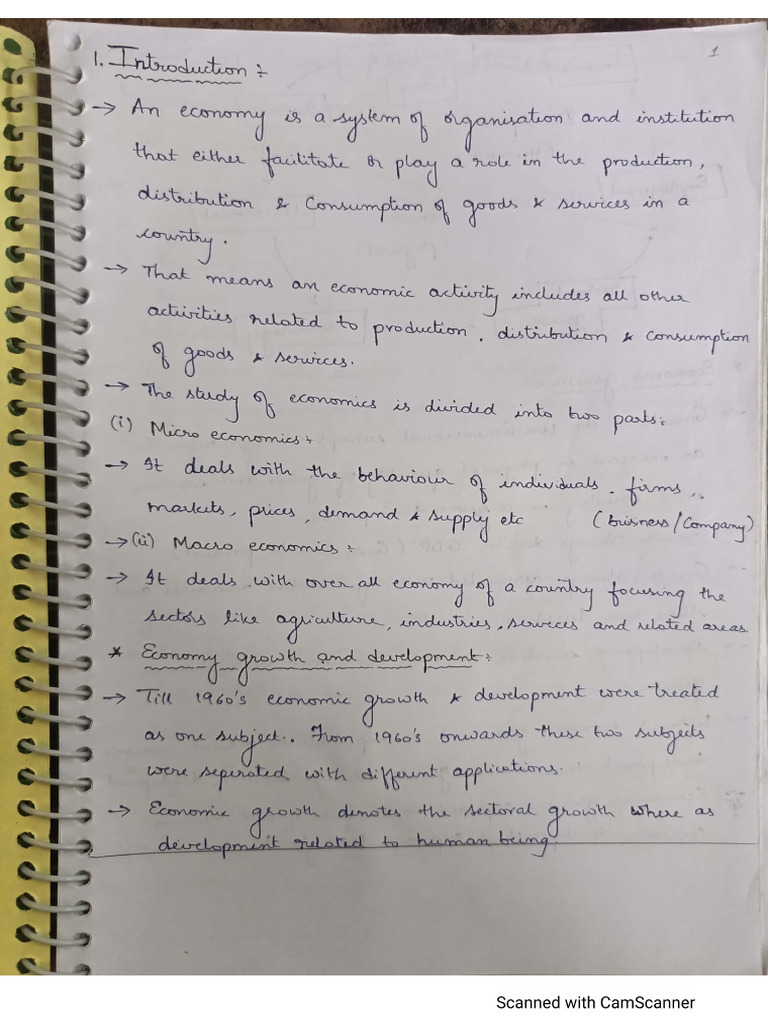 1
1. Introduction :-
→ An economy is a system of organisation and institution
that either facilitate or play a role in the production,
distribution & Consumption of goods & services in a
country.
→ That means an economic activity includes all other
activities related to production, distribution & consumption
of goods & services.
→ The study of economics is divided into two parts:
(i) Micro economics :-
→ It deals with the behaviour of individuals, firms,
markets, prices, demand & supply etc (Buisness/Company)
→ (ii) Macro economics :-
→ It deals with over all economy of a country focusing the
sectors like agriculture, industries, services and related areas
* Economy growth and development :-
→ Till 1960's economic growth & development were treated
as one subject. From 1960's onwards these two subjects
were seperated with different applications.
→ Economic growth denotes the sectoral growth where as
development related to human being.
Scanned with CamScanner